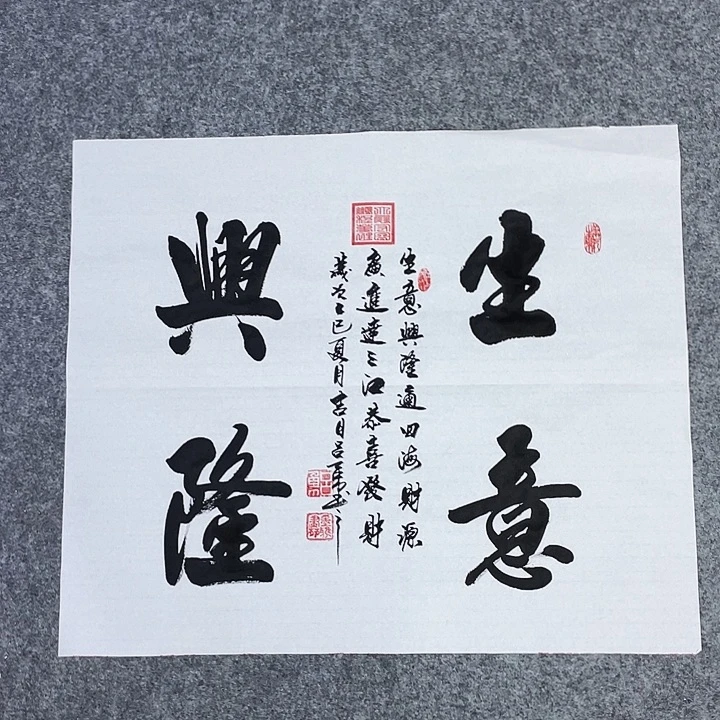 生意
興隆
生意興隆通四海財源
廣進達三江恭喜發財
歲次乙巳夏月吉日呂